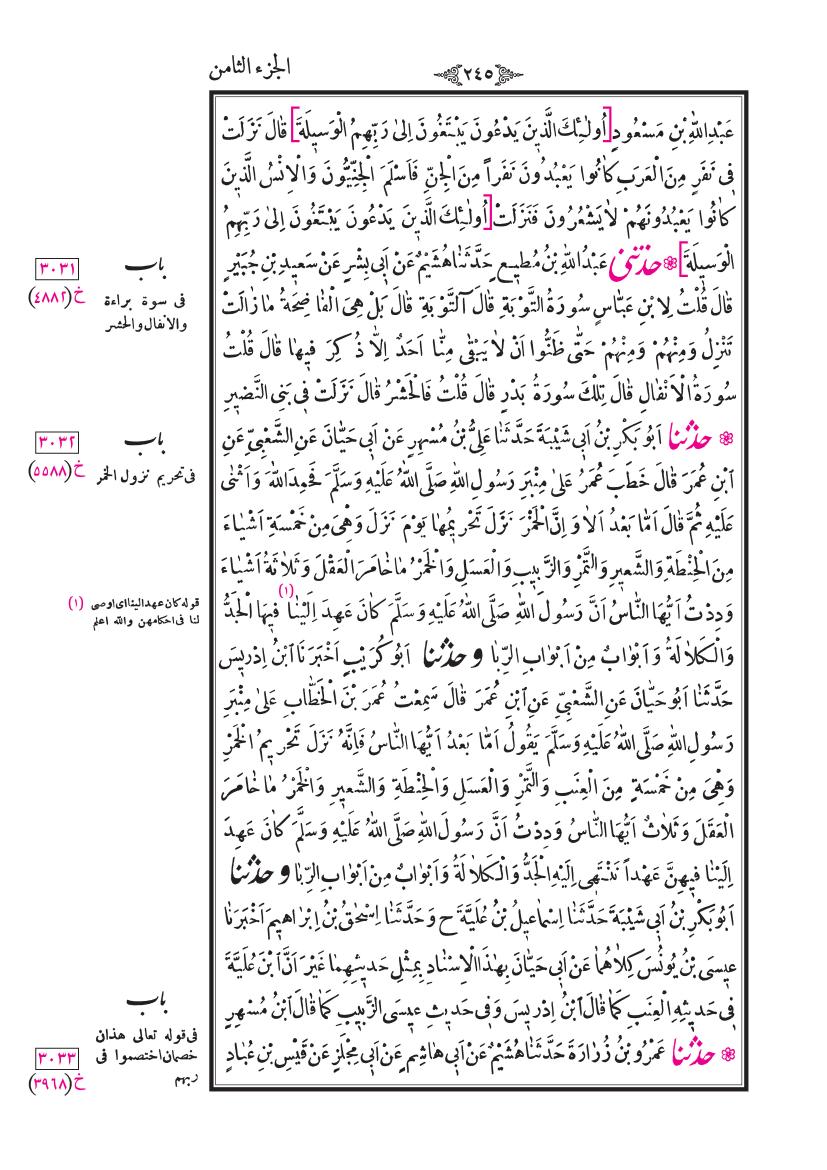 الجزء الثامن
٢٤٥
عَبْدِاللّٰهِ بْنِ مَسْعُودٍ [اُولٰئِكَ الَّذينَ يَدْعُونَ يَبْتَغُونَ اِلىٰ رَبِّهِمُ الْوَسيلَةَ] قٰالَ نَزَلَتْ
فى نَفَرٍ مِنَ الْعَرَبِ كٰانُوا يَعْبُدُونَ نَفَراً مِنَ الْجِنِّ فَاَسْلَمَ الْجِنِّيُّونَ وَالْاِنْسُ الَّذينَ
كٰانُوا يَعْبُدُونَهُمْ لاٰيَشْعُرُونَ فَنَزَلَتْ [اُولٰئِكَ الَّذينَ يَدْعُونَ يَبْتَغُونَ اِلىٰ رَبِّهِمُ
الْوَسيلَةَ] ❁ حدّثنى عَبْدُاللّٰهِ بْنُ مُطيعٍ حَدَّثَنٰا هُشَيْمٌ عَنْ اَبى بِشْرٍ عَنْ سَعيدِ بْنِ جُبَيْرٍ
قٰالَ قُلْتُ لِابْنِ عَبّٰاسٍ سُورَةُ التَّوْبَةِ قٰالَ آلتَّوْبَةِ قٰالَ بَلْ هِىَ الْفٰاضِحَةُ مٰا زٰالَتْ
تَنْزِلُ وَمِنْهُمْ وَمِنْهُمْ حَتّٰى ظَنُّوا اَنْ لاٰيَبْقٰى مِنّٰا اَحَدٌ اِلاّٰ ذُكِرَ فيهٰا قٰالَ قُلْتُ
سُورَةُ الْاَنْفٰالِ قٰالَ تِلْكَ سُورَةُ بَدْرٍ قٰالَ قُلْتُ فَالْحَشْرُ قٰالَ نَزَلَتْ فى بَنِى النَّضيرِ
❁ حدّثنا اَبُوبَكْرِ بْنُ اَبى شَيْبَةَ حَدَّثَنٰا عَلِىُّ بْنُ مُسْهِرٍ عَنْ اَبى حَيّٰانَ عَنِ الشَّعْبِىِّ عَنِ
ابْنِ عُمَرَ قٰالَ خَطَبَ عُمَرُ عَلىٰ مِنْبَرِ رَسُولِ اللّٰهِ صَلَّى اللّٰهُ عَلَيْهِ وَسَلَّمَ فَحَمِدَ اللّٰهَ وَاَثْنٰى
عَلَيْهِ ثُمَّ قٰالَ اَمّٰا بَعْدُ اَلاٰ وَاِنَّ الْخَمْرَ نَزَلَ تَحْريمُهٰا يَوْمَ نَزَلَ وَهِىَ مِنْ خَمْسَةِ اَشْيٰاءَ
مِنَ الْحِنْطَةِ وَالشَّعيرِ وَالتَّمْرِ وَالزَّبيبِ وَالْعَسَلِ وَالْخَمْرُ مٰا خٰامَرَ الْعَقْلَ وَثَلاٰثَةُ اَشْيٰاءَ
وَدِدْتُ اَيُّهَا النّٰاسُ اَنَّ رَسُولَ اللّٰهِ صَلَّى اللّٰهُ عَلَيْهِ وَسَلَّمَ كٰانَ عَهِدَ اِلَيْنٰا (١) فيهَا الْجَدُّ
وَالْكَلاٰلَةُ وَاَبْوٰابٌ مِنْ اَبْوٰابِ الرِّبٰا وحدّثنا اَبُوكُرَيْبٍ اَخْبَرَنَا ابْنُ اِدْريسَ
حَدَّثَنٰا اَبُوحَيّٰانَ عَنِ الشَّعْبِىِّ عَنِ ابْنِ عُمَرَ قٰالَ سَمِعْتُ عُمَرَ بْنَ الْخَطّٰابِ عَلىٰ مِنْبَرِ
رَسُولِ اللّٰهِ صَلَّى اللّٰهُ عَلَيْهِ وَسَلَّمَ يَقُولُ اَمّٰا بَعْدُ اَيُّهَا النّٰاسُ فَاِنَّهُ نَزَلَ تَحْريمُ الْخَمْرِ
وَهِىَ مِنْ خَمْسَةٍ مِنَ الْعِنَبِ وَالتَّمْرِ وَالْعَسَلِ وَالْحِنْطَةِ وَالشَّعيرِ وَالْخَمْرُ مٰا خٰامَرَ
الْعَقْلَ وَثَلاٰثٌ اَيُّهَا النّٰاسُ وَدِدْتُ اَنَّ رَسُولَ اللّٰهِ صَلَّى اللّٰهُ عَلَيْهِ وَسَلَّمَ كٰانَ عَهِدَ
اِلَيْنٰا فيهِنَّ عَهْداً نَنْتَهى اِلَيْهِ الْجَدُّ وَالْكَلاٰلَةُ وَاَبْوٰابٌ مِنْ اَبْوٰابِ الرِّبٰا وحدّثنا
اَبُوبَكْرِ بْنُ اَبى شَيْبَةَ حَدَّثَنٰا اِسْمٰاعيلُ بْنُ عُلَيَّةَ ح وَحَدَّثَنٰا اِسْحٰقُ بْنُ اِبْرٰاهيمَ اَخْبَرَنٰا
عيسَى بْنُ يُونُسَ كِلاٰهُمٰا عَنْ اَبى حَيّٰانَ بِهٰذَا الْاِسْنٰادِ بِمِثْلِ حَديثِهِمٰا غَيْرَ اَنَّ ابْنَ عُلَيَّةَ
فى حَديثِهِ الْعِنَبِ كَمٰا قٰالَ ابْنُ اِدْريسَ وَفى حَديثِ عيسَى الزَّبيبِ كَمٰا قٰالَ ابْنُ مُسْهِرٍ
❁ حدّثنا عَمْرُو بْنُ زُرٰارَةَ حَدَّثَنٰا هُشَيْمٌ عَنْ اَبى هٰاشِمٍ عَنْ اَبى مِجْلَزٍ عَنْ قَيْسِ بْنِ عُبٰادٍ
باب
فى سوة براءة
والانفال والحشر
٣٠٣١
خ (٤٨٨٢)
باب
فى تحريم نزول الخمر
٣٠٣٢
خ (٥٥٨٨)
قوله كان عهد الينا اى اوصى (١)
لنا فى احكامهن والله اعلم
باب
فى قوله تعالى هذان
خصمان اختصموا فى
ربهم
٣٠٣٣
خ (٣٩٦٨)